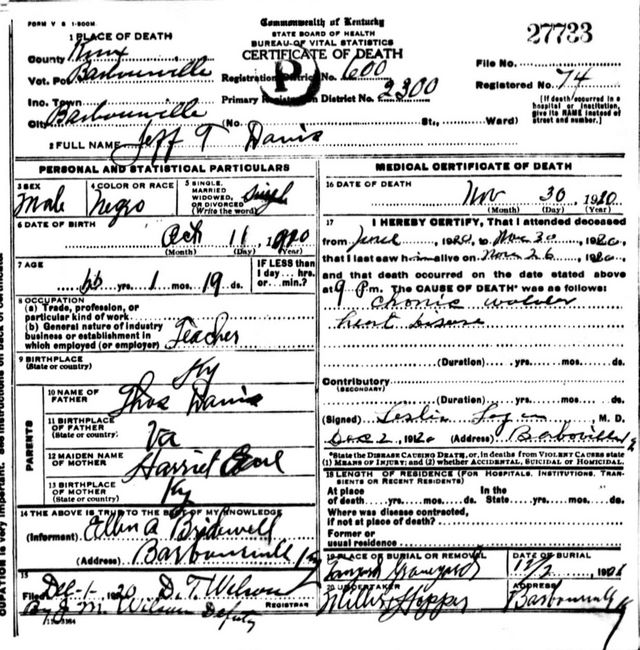 FORM V S 1-500M
Commonwealth of Kentucky
STATE BOARD OF HEALTH
BUREAU OF VITAL STATISTICS
CERTIFICATE OF DEATH
27733
1 PLACE OF DEATH
County Knox
Vot. Pct. Barbourville
Inc. Town
City Barbourville
Registration District No. 600
Primary Registration District No. 2300
P
File No.
Registered No. 74
[If death occurred in a hospital or institution, give its NAME instead of street and number.]
(No. St., Ward)
2 FULL NAME Jeff T Davis
PERSONAL AND STATISTICAL PARTICULARS
3 SEX
Male
4 COLOR OR RACE
Negro
5 SINGLE, MARRIED WIDOWED, OR DIVORCED (Write the word)
Single
6 DATE OF BIRTH
Oct 11
(Month) (Day) (Year)
7 AGE
1 mos. 19 ds.
IF LESS than 1 day... hrs. or... min.?
8 OCCUPATION
(a) Trade, profession, or particular kind of work
(b) General nature of industry business or establishment in which employed (or employer)
Teacher
9 BIRTHPLACE
(State or country)
Ky
PARENTS
10 NAME OF FATHER
Thos Davis
11 BIRTHPLACE OF FATHER
(State or country)
Va
12 MAIDEN NAME OF MOTHER
Harriet
13 BIRTHPLACE OF MOTHER
(State or country)
Ky
14 THE ABOVE IS TRUE TO THE BEST OF MY KNOWLEDGE
(Informant) A Bridwell
(Address) Barbourville Ky
15
Filed Dec-1-, 1920 D. T. Wilson
REGISTRAR
By J M. Wilson Deputy
MEDICAL CERTIFICATE OF DEATH
16 DATE OF DEATH
Nov 30 1920
(Month) (Day) (Year)
17 I HEREBY CERTIFY, That I attended deceased
from June, 1920, to Nov 30, 1920,
that I last saw him alive on Nov 26, 1920,
and that death occurred on the date stated above
at 9 P m. The CAUSE OF DEATH* was as follows:
Chronic
heart
(Duration) yrs. mos. ds.
Contributory
(SECONDARY)
(Duration) yrs. mos. ds.
(Signed) Leslie Logan M. D.
Dec 2, 1920 (Address)
*State the DISEASE CAUSING DEATH, or, in deaths from VIOLENT CAUSES state (1) MEANS OF INJURY; and (2) whether ACCIDENTAL, SUICIDAL or HOMICIDAL.
18 LENGTH OF RESIDENCE (FOR HOSPITALS, INSTITUTIONS, TRANSIENTS OR RECENT RESIDENTS)
At place of death yrs. mos. ds. In the State yrs. mos. ds.
Where was disease contracted, if not at place of death?
Former or usual residence
19 PLACE OF BURIAL OR REMOVAL
Graveyard
DATE OF BURIAL
12/3
20 UNDERTAKER
Miller Hopper
ADDRESS
Barbourville Ky